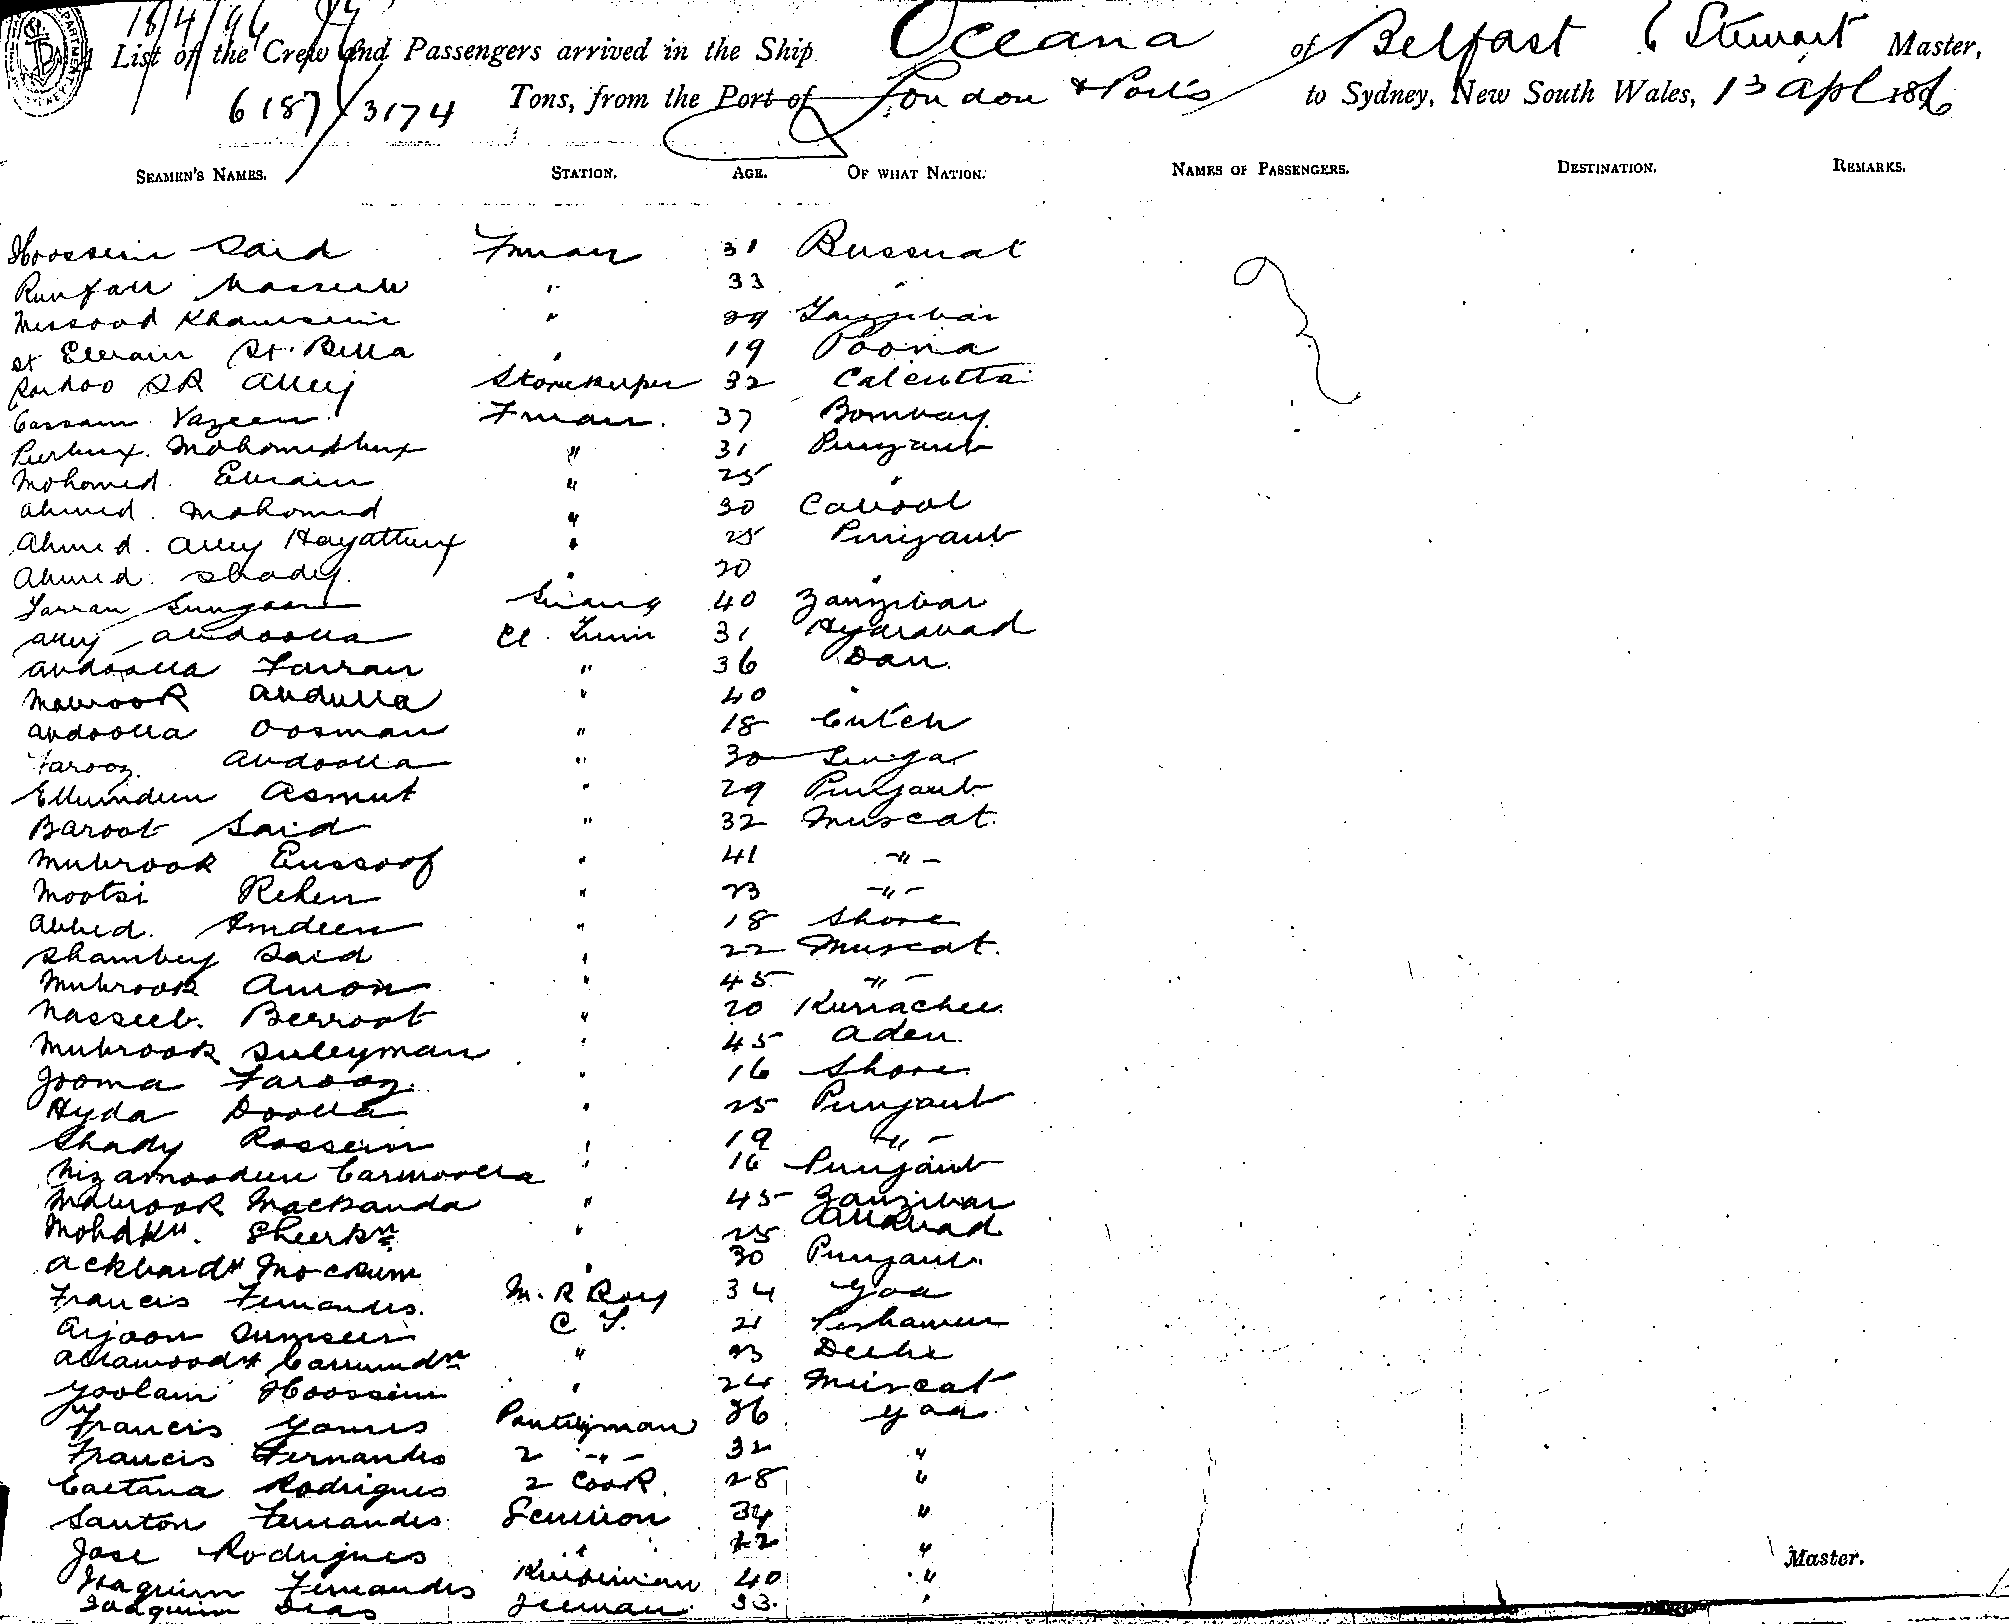 18/4/96
A List of the Crew and Passengers arrived in the Ship Oceana of Belfast Stewart Master,
6187/3174 Tons, from the Port of London & Ports to Sydney, New South Wales, 13 Apl 1896
SEAMEN'S NAMES. STATION. AGE. OF WHAT NATION. NAMES OF PASSENGERS. DESTINATION. REMARKS.
Hoossein Said Fman 31 Bussrat
33 "
Khamseni " Zanzibar
" 19 Poona
Alley Storekeeper 32 Calcutta
Cassam Vazeer Fman. 37 Bombay
Peerbux. Mohomedbux " 31 Punjaub
Mohomed. Ebrain " 25 "
Ahmed. Mohomed " 30 Cabool
Ahmed. Alley Hayatbux " 25 Punjaub
Ahmed. Shady. " 20 "
Farran 40 Zanzibar
Alley Abdoolla 31 Hydrabad
Abdoolla Farran " 36
Mabrook Abdulla " 40 "
Abdoolla Oosman " 18 Cutch
Farooz Abdoolla " 30
Asmut " 29 Punjaub
Baroot Said " 32 Muscat.
Mubrook Eussoof " 41 -"-
Mootsi Rehen " 23 -"-
Amdeen " 18 Shore
Shambey Said " 22 Muscat.
Mubrook Amon " 45 -"-
Nasseeb. Berroot " 20 Kurrachee
Mubrook Suleyman " 45 Aden
Jooma Farooz " 16 Shore
Hyda Doolla " 25 Punjaub
Shady Rossein " 19 -"-
Nizamoodeen Carmoolla " 16 Punjaub
Mabrook Mackanda " 45 Zanzibar
Mohdkn. Sheerkn " 25 Allabad
Mockum " 30 Punjaub.
Francis Fernandes. M. R Boy 34 Goa
Arjoon C T. 21 Peshawur
" 23
Goolam Hoossein " 24 Muscat
Francis Gomes Pantryman 36 Goa
Francis Fernandes 2 -"- 32 "
Caetana Rodrigues 2 Cook. 28 "
Santon Fernandes Scullion 34 "
Jose Rodrigues " 22 "
Joaquim Fernandes 40 "
Joaquim Dias 33. "
Master.